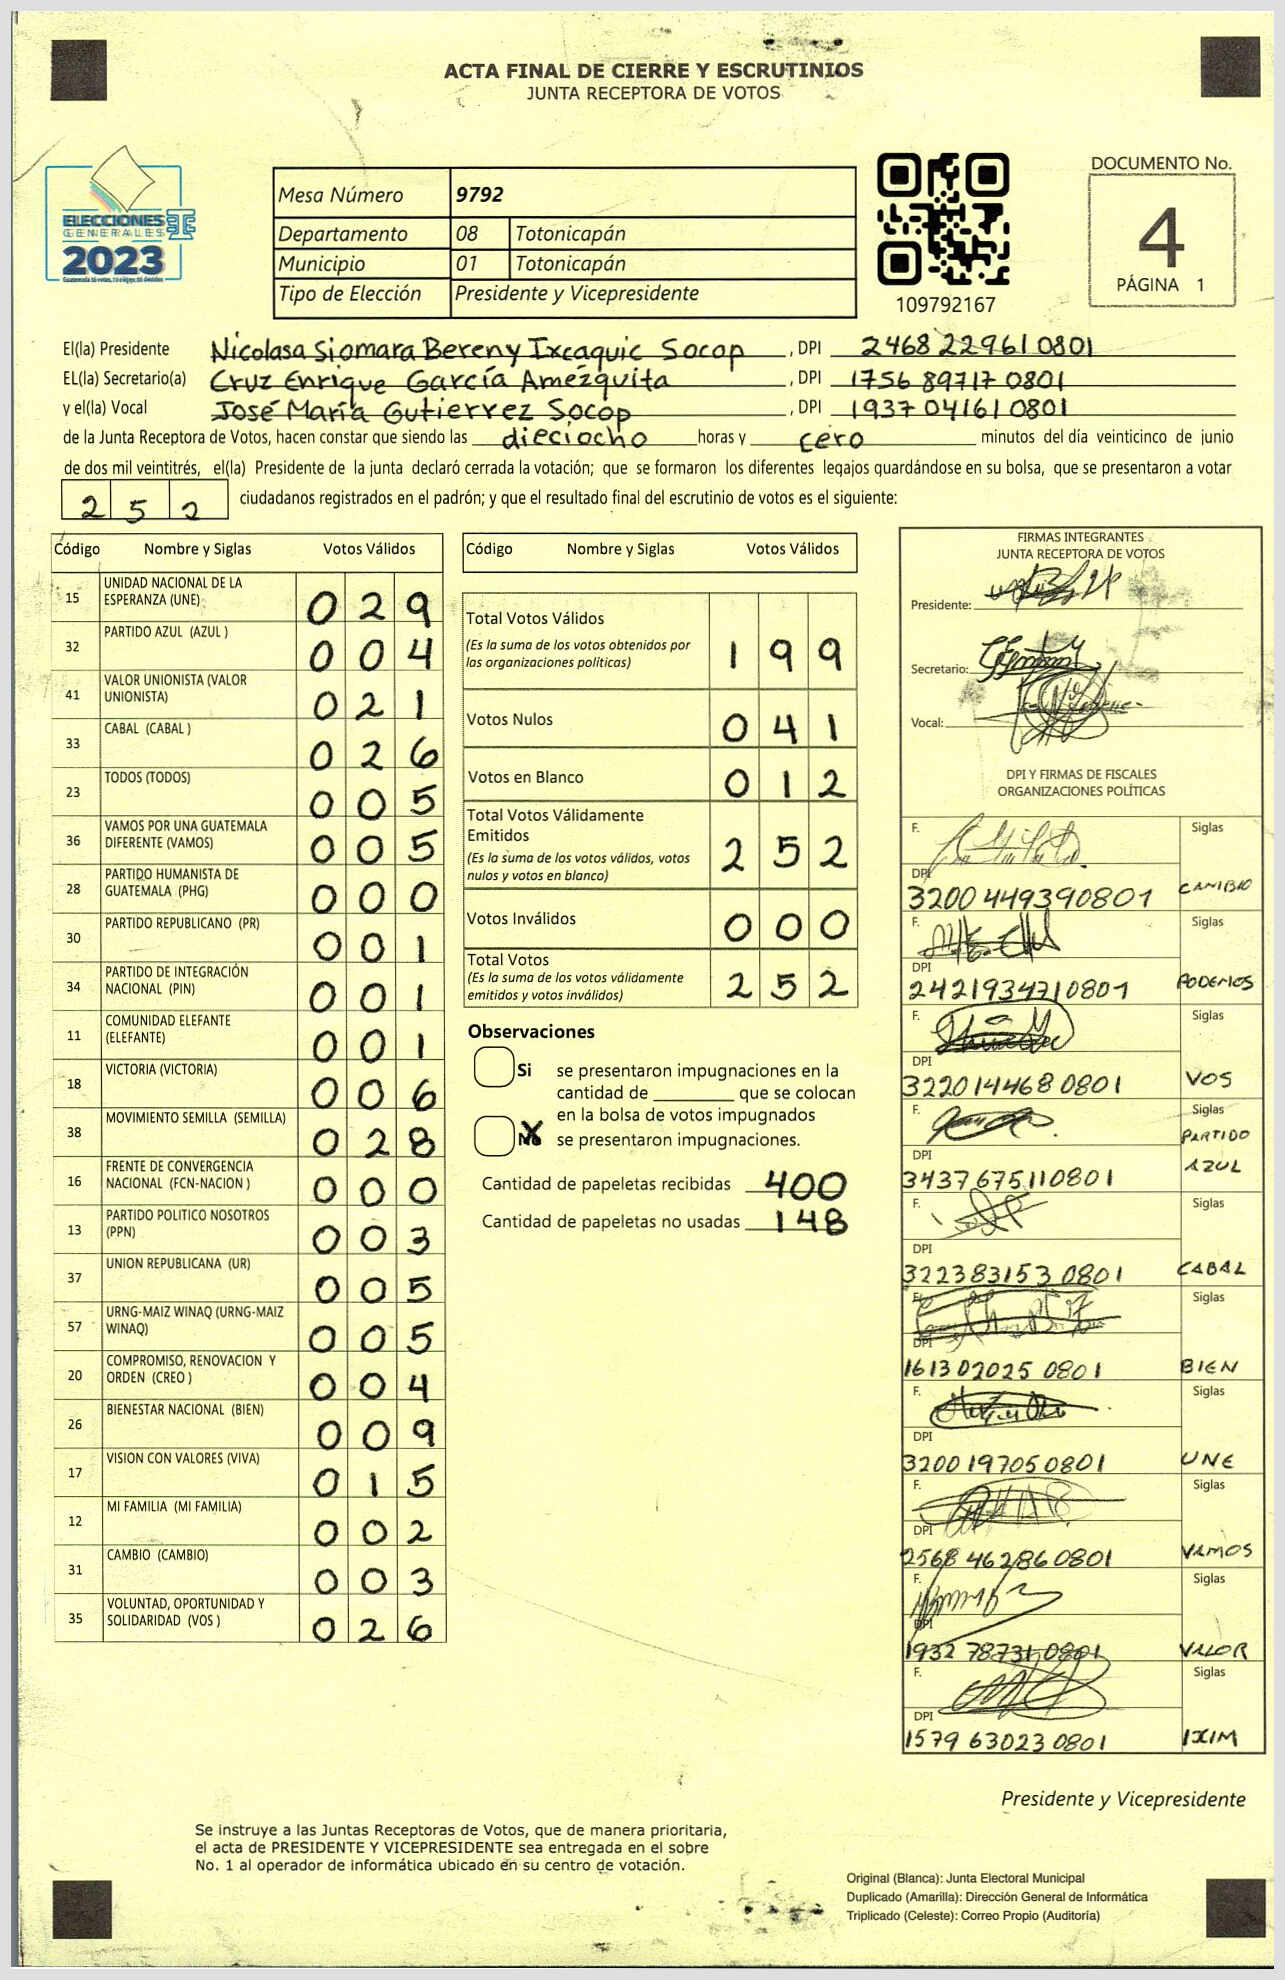 ACTA FINAL DE CIERRE Y ESCRUTINIOS
JUNTA RECEPTORA DE VOTOS
ELECCIONES
GENERALES
2023
Mesa Número 9792
Departamento 08 Totonicapán
Municipio 01 Totonicapán
Tipo de Elección Presidente y Vicepresidente
109792167
DOCUMENTO No.
4
PÁGINA 1
El(la) Presidente Nicolasa Siomara Bereny Ixcaquic Socop, DPI 2468 22961 0801
EL(la) Secretario(a) Cruz Enrique García Amézquita, DPI 1756 89717 0801
y el(la) Vocal José María Gutierrez Socop, DPI 1937 04161 0801
de la Junta Receptora de Votos, hacen constar que siendo las dieciocho horas y cero minutos del día veinticinco de junio
de dos mil veintitrés, el(la) Presidente de la junta declaró cerrada la votación; que se formaron los diferentes legajos quardándose en su bolsa, que se presentaron a votar
252 ciudadanos registrados en el padrón; y que el resultado final del escrutinio de votos es el siguiente:
Código Nombre y Siglas Votos Válidos
15 UNIDAD NACIONAL DE LA
ESPERANZA (UNE) 029
32 PARTIDO AZUL (AZUL ) 004
41 VALOR UNIONISTA (VALOR
UNIONISTA) 021
33 CABAL (CABAL ) 026
23 TODOS (TODOS) 005
36 VAMOS POR UNA GUATEMALA
DIFERENTE (VAMOS) 005
28 PARTIDO HUMANISTA DE
GUATEMALA (PHG) 000
30 PARTIDO REPUBLICANO (PR) 001
34 PARTIDO DE INTEGRACIÓN
NACIONAL (PIN) 001
11 COMUNIDAD ELEFANTE
(ELEFANTE) 001
18 VICTORIA (VICTORIA) 006
38 MOVIMIENTO SEMILLA (SEMILLA) 028
16 FRENTE DE CONVERGENCIA
NACIONAL (FCN-NACION ) 000
13 PARTIDO POLITICO NOSOTROS
(PPN) 003
37 UNION REPUBLICANA (UR) 005
57 URNG-MAIZ WINAQ (URNG-MAIZ
WINAQ) 005
20 COMPROMISO, RENOVACION Y
ORDEN (CREO ) 004
26 BIENESTAR NACIONAL (BIEN) 009
17 VISION CON VALORES (VIVA) 015
12 MI FAMILIA (MI FAMILIA) 002
31 CAMBIO (CAMBIO) 003
35 VOLUNTAD, OPORTUNIDAD Y
SOLIDARIDAD (VOS ) 026
Código Nombre y Siglas Votos Válidos
Total Votos Válidos
(Es la suma de los votos obtenidos por
las organizaciones políticas) 199
Votos Nulos 041
Votos en Blanco 012
Total Votos Válidamente
Emitidos
(Es la suma de los votos válidos, votos
nulos y votos en blanco) 252
Votos Inválidos 000
Total Votos
(Es la suma de los votos válidamente
emitidos y votos inválidos) 252
Observaciones
Si se presentaron impugnaciones en la
cantidad de ________ que se colocan
en la bolsa de votos impugnados
X No se presentaron impugnaciones.
Cantidad de papeletas recibidas 400
Cantidad de papeletas no usadas 148
FIRMAS INTEGRANTES
JUNTA RECEPTORA DE VOTOS
Presidente:
Secretario:
Vocal:
DPI Y FIRMAS DE FISCALES
ORGANIZACIONES POLÍTICAS
F. Siglas
DPI
3200 449390801 CAMBIO
F. Siglas
DPI
2421934710801 PODEMOS
F. Siglas
DPI
322014468 0801 VOS
F. Siglas
PARTIDO
DPI
3437675110801 AZUL
F. Siglas
DPI
322383153 0801 CABAL
F. Siglas
DPI
1613 02025 0801 BIEN
F. Siglas
DPI
3200 197050801 UNE
F. Siglas
DPI
2568 462860801 VAMOS
F. Siglas
DPI
1932 78731 0801 VALOR
F. Siglas
DPI
1579 63023 0801 IXIM
Presidente y Vicepresidente
Se instruye a las Juntas Receptoras de Votos, que de manera prioritaria,
el acta de PRESIDENTE Y VICEPRESIDENTE sea entregada en el sobre
No. 1 al operador de informática ubicado en su centro de votación.
Original (Blanca): Junta Electoral Municipal
Duplicado (Amarilla): Dirección General de Informática
Triplicado (Celeste): Correo Propio (Auditoría)